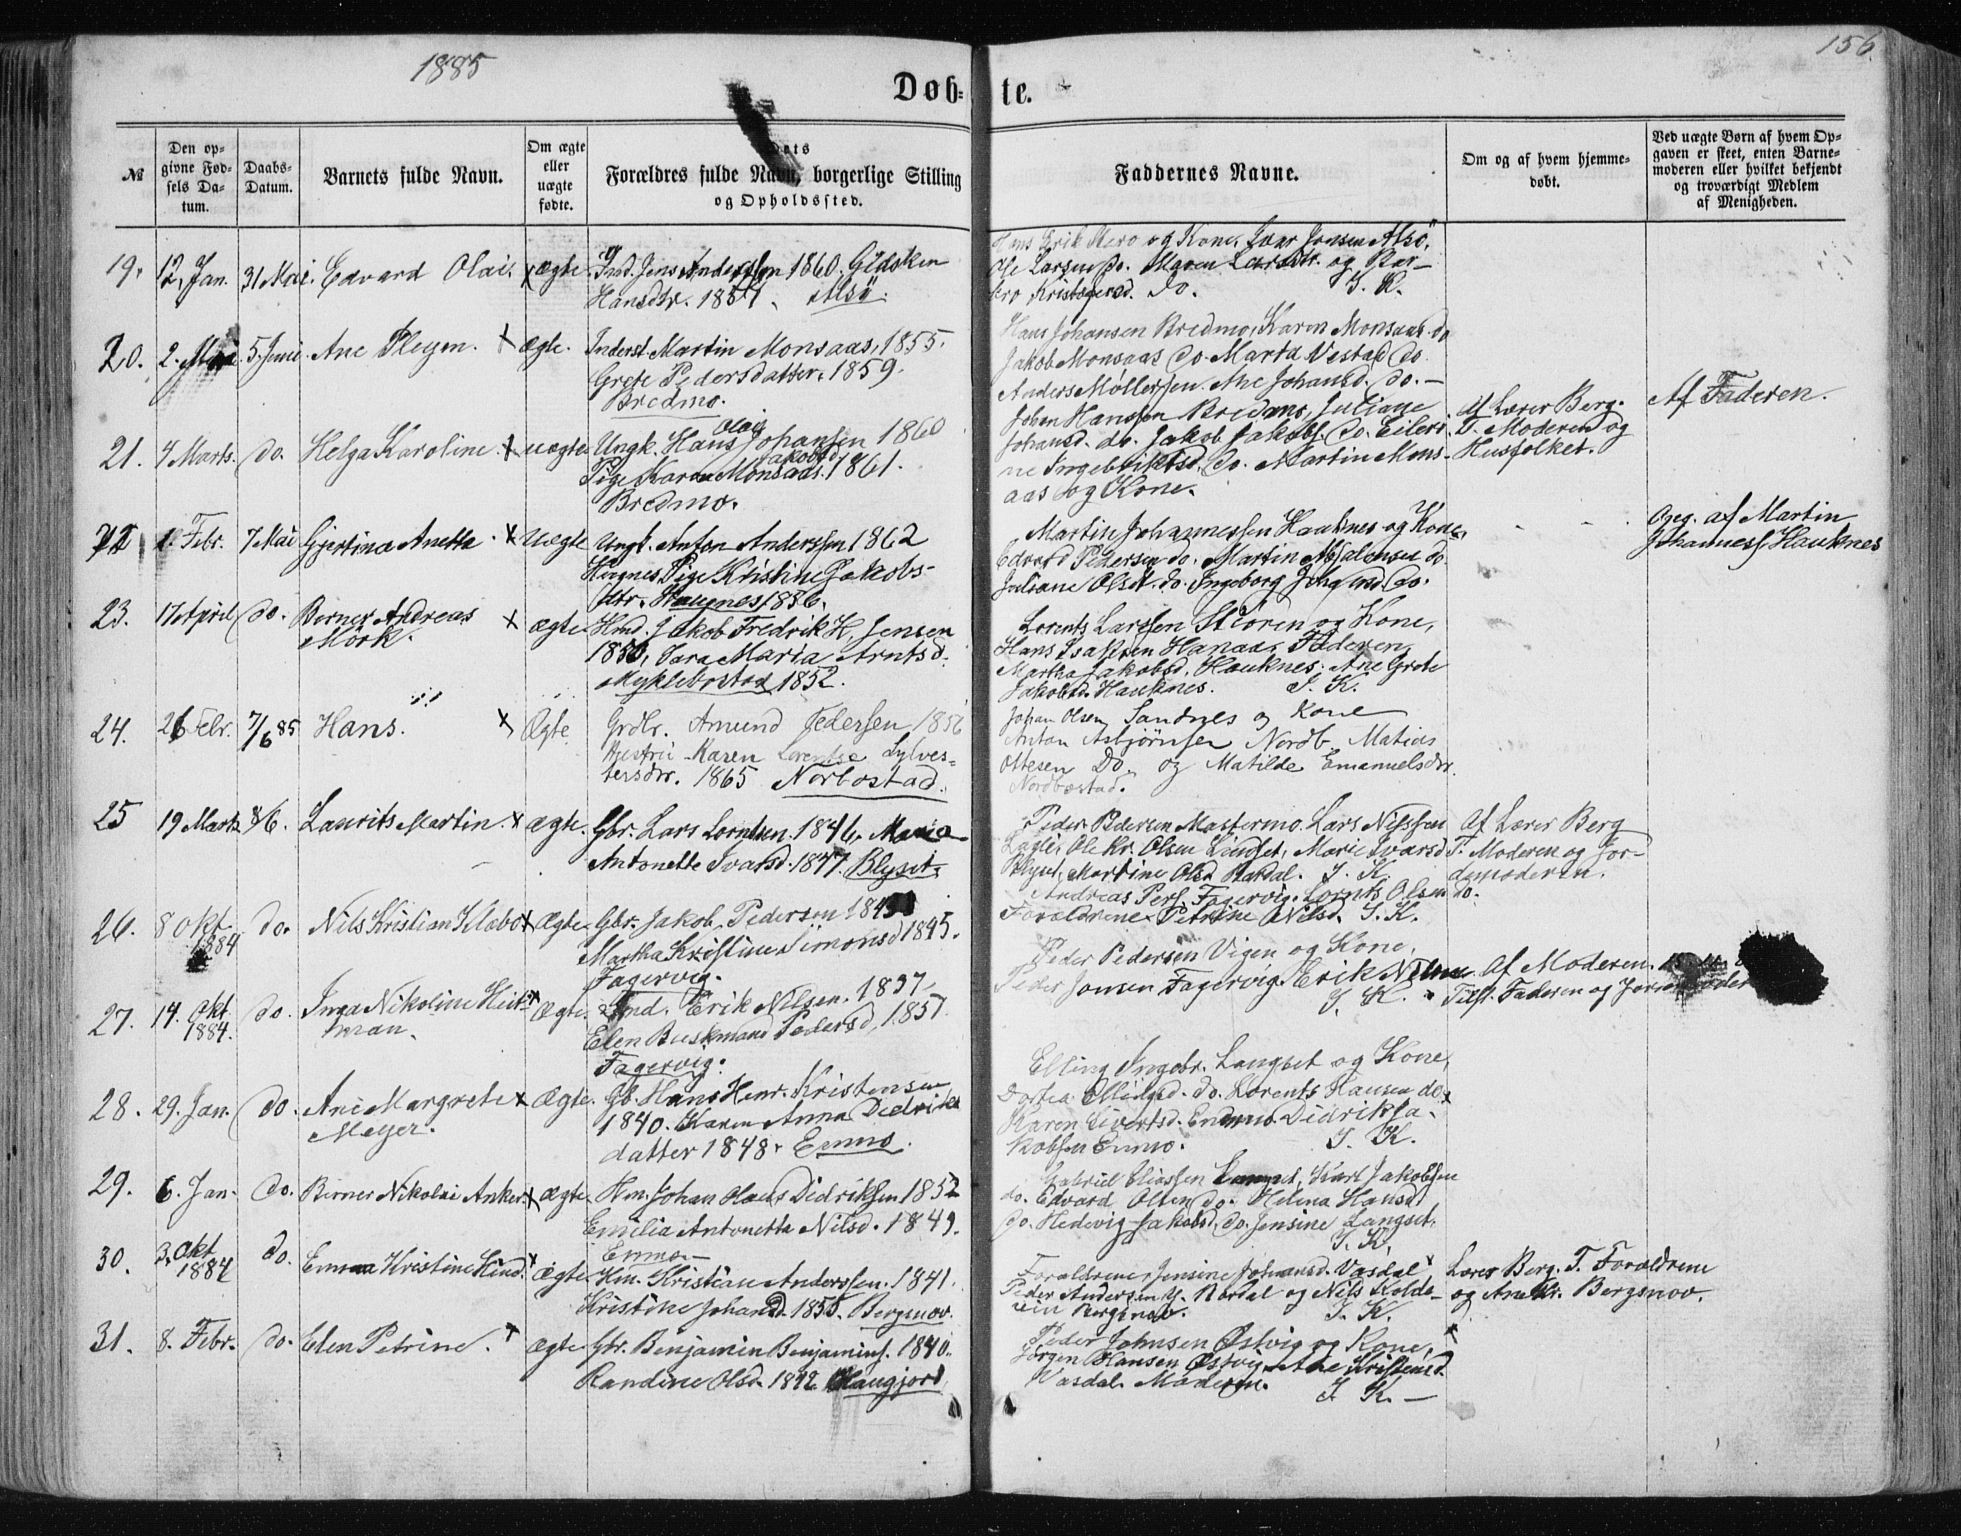 1885
156
Døb-
te.
№
Den op-
givne Fød-
sels Da-
tum.
Daabs-
Datum.
Barnets fulde Navn.
Om ægte
eller
uægte
fødte.
Forældres fulde Navn, borgerlige Stilling
og Opholdssted.
Faddernes Navne.
Om og af hvem hjemme-
døbt.
Ved uægte Børn af hvem Op-
gaven er skeet, enten Barne-
moderen eller hvilket bekjendt
og troværdigt Medlem
af Menigheden.
19. 12. Jan. 31 Mai. Edvard Olai. x ægte. Ind. Jens Anderssen 1860. Gidsken
Hansdtr. 1857. Alsö.
Hans Erik og Kone. Jonsen Alsö.
Ole Larsen Do. Maren Larsdtr. og
Kristofersd. Do. I. K.
20. 2. 5. Juni Ane Pleym. x ægte. Inderst. Martin Monsaas, 1855.
Grete Pedersdatter. 1859.
Bredmo.
Hans Johansen Bredmo, Karen Monsaas do
Jakob Monsaas Do. Marta Vestad Do.
Anders Møllersen. Ane Johansd. Do. –
21. 4 Marts. do. Helga Karoline. x uægte Ungk. Hans Olai Johansen 1860
Pige Karen Jakobsd Monsaas. 1861.
Bredmo.
Johan Hanssen Bredmo, Juliane
Johansd. do. Jakob Jakobs. Do. Eiler-
ne Ingebriktsd. Do. Martin Mons-
aas og Kone.
Af Lærer Berg.
T. Moderen og
Husfolket.
Af Faderen.
1. Febr. 7 Mai Gjertina Anetta. x uægte Ungk. Anton Anderssen 1862
Pige Kristine Jakobs-
dtr. Haugnes 1836.
Martin Johannessen Hauknes og Kone,
Edvard Pedersen do. Martin Absalonsen do.
Juliane Olsd. do. Ingeborg do.
Opg. af Martin
Johanness. Hauknes
23. 17 April do. Berner Andreas
Mørk. x ægte Hmd. Jakob Fredrik H. Jensen
1850, Sara Maria Arntsd.
Myklebostad 1852.
Lorents Larssen Støren og Kone,
Hans Isaksen Hanaas, Faderen
Martha Jakobsd. Hauknes. Ane Grete
Jakobsd. Hauknes. I. K.
24. 26 Febr. 7/6 85 Hans. x Ægte. Grdbr. Amund Pedersen 1856
Hustru Karen Lorentse Sylves-
tersdtr. 1865 Norbostad.
Johan Olsen Sandnes og Kone
Anton Asbjørnsen Nordb. Matias
Ottesen Do. og Matilde Emanuelsdtr.
Nordbostad.
25 19 Marts 8/6. Laurits Martin. x ægte. Gbr. Lars Lorntsen. 1846, Maria
Antonette Ivarsd. 1847. Blyset.
Peder Pedersen Mastermo. Lars Nilssen
Ole Kr. Olsen Lindset, Marie Ivarsd
Blyset, Martine Olsd Bardal. I. K.
Af Lærer Berg
T. Moderen og Jor-
demoderen.
26. 8 Okt
1884 do. Nils Kristian Klæbo x Ægte Gbr. Jakob Pedersen
Martha Kristine Simonsd 1845.
Fagervig.
Andreas Pers. Fagervig. Lornts Olsen Do.
Forældrene Petrine Nilsd. I. K.
27. 14. Okt
1884. do Inga Nikoline Heit-
man. x Ægte. Ind. Erik Nilsen. 1837,
Elen Buskmand Pedersd, 1857
Fagervig.
Peder Pedersen Vigen og Kone,
Peder Fagervig. Erik Nilsen
I. K.
Af Moderen.
Tilst. Faderen og
28. 29. Jan. do. Ane Margrete
Meyer. x Ægte. Gb. Hans Henr. Kristensen
1840. Karen Anna Dedriks
datter 1848. Enmo.
Elling Ingebr. Langset og Kone,
Dortea Ellingsd. do. Lorents Hansen do.
Karen Sivertsd. Enmo. Didrik Ja-
kobsen Enmo. I. K.
29. 6. Jan. Do. Berner Nikolai Anker x ægte Hm. Johan Olaus Didriksen 1852
Emilia Antonetta Nilsd. 1849.
Enmo
Gabriel Eliassen Langset, Karl Jakobsen
do. Edvard Olsen do. Helena Hansd
do. Hedevig Jakobsd. do. Jensine Langset.
I. K.
30. 3. Okt
1884 do. Emma Kristine Hind. x ægte Hm. Kristian Anderssen. 1841.
Kristine Johansd. 1855. Bergsnov.
Forældrene, Jensine Johansd. Vasdal
Peder Andersen Nordal og Nils Kolde-
vin Bergsnov. I. K.
Lærer Berg. T. Forældrene
og Ane Kr. Bergsnov.
31. 8. Febr. do. Elen Petrine. x ægte Gbr. Benjamin Benjamins. 1840.
Randine Olsd. 1842 Haugjord
Peder Johnsen Østvig og Kone,
Jørgen Hansen Østvig, Ane Kristensd.
Vasdal. Moderen. I. K. –